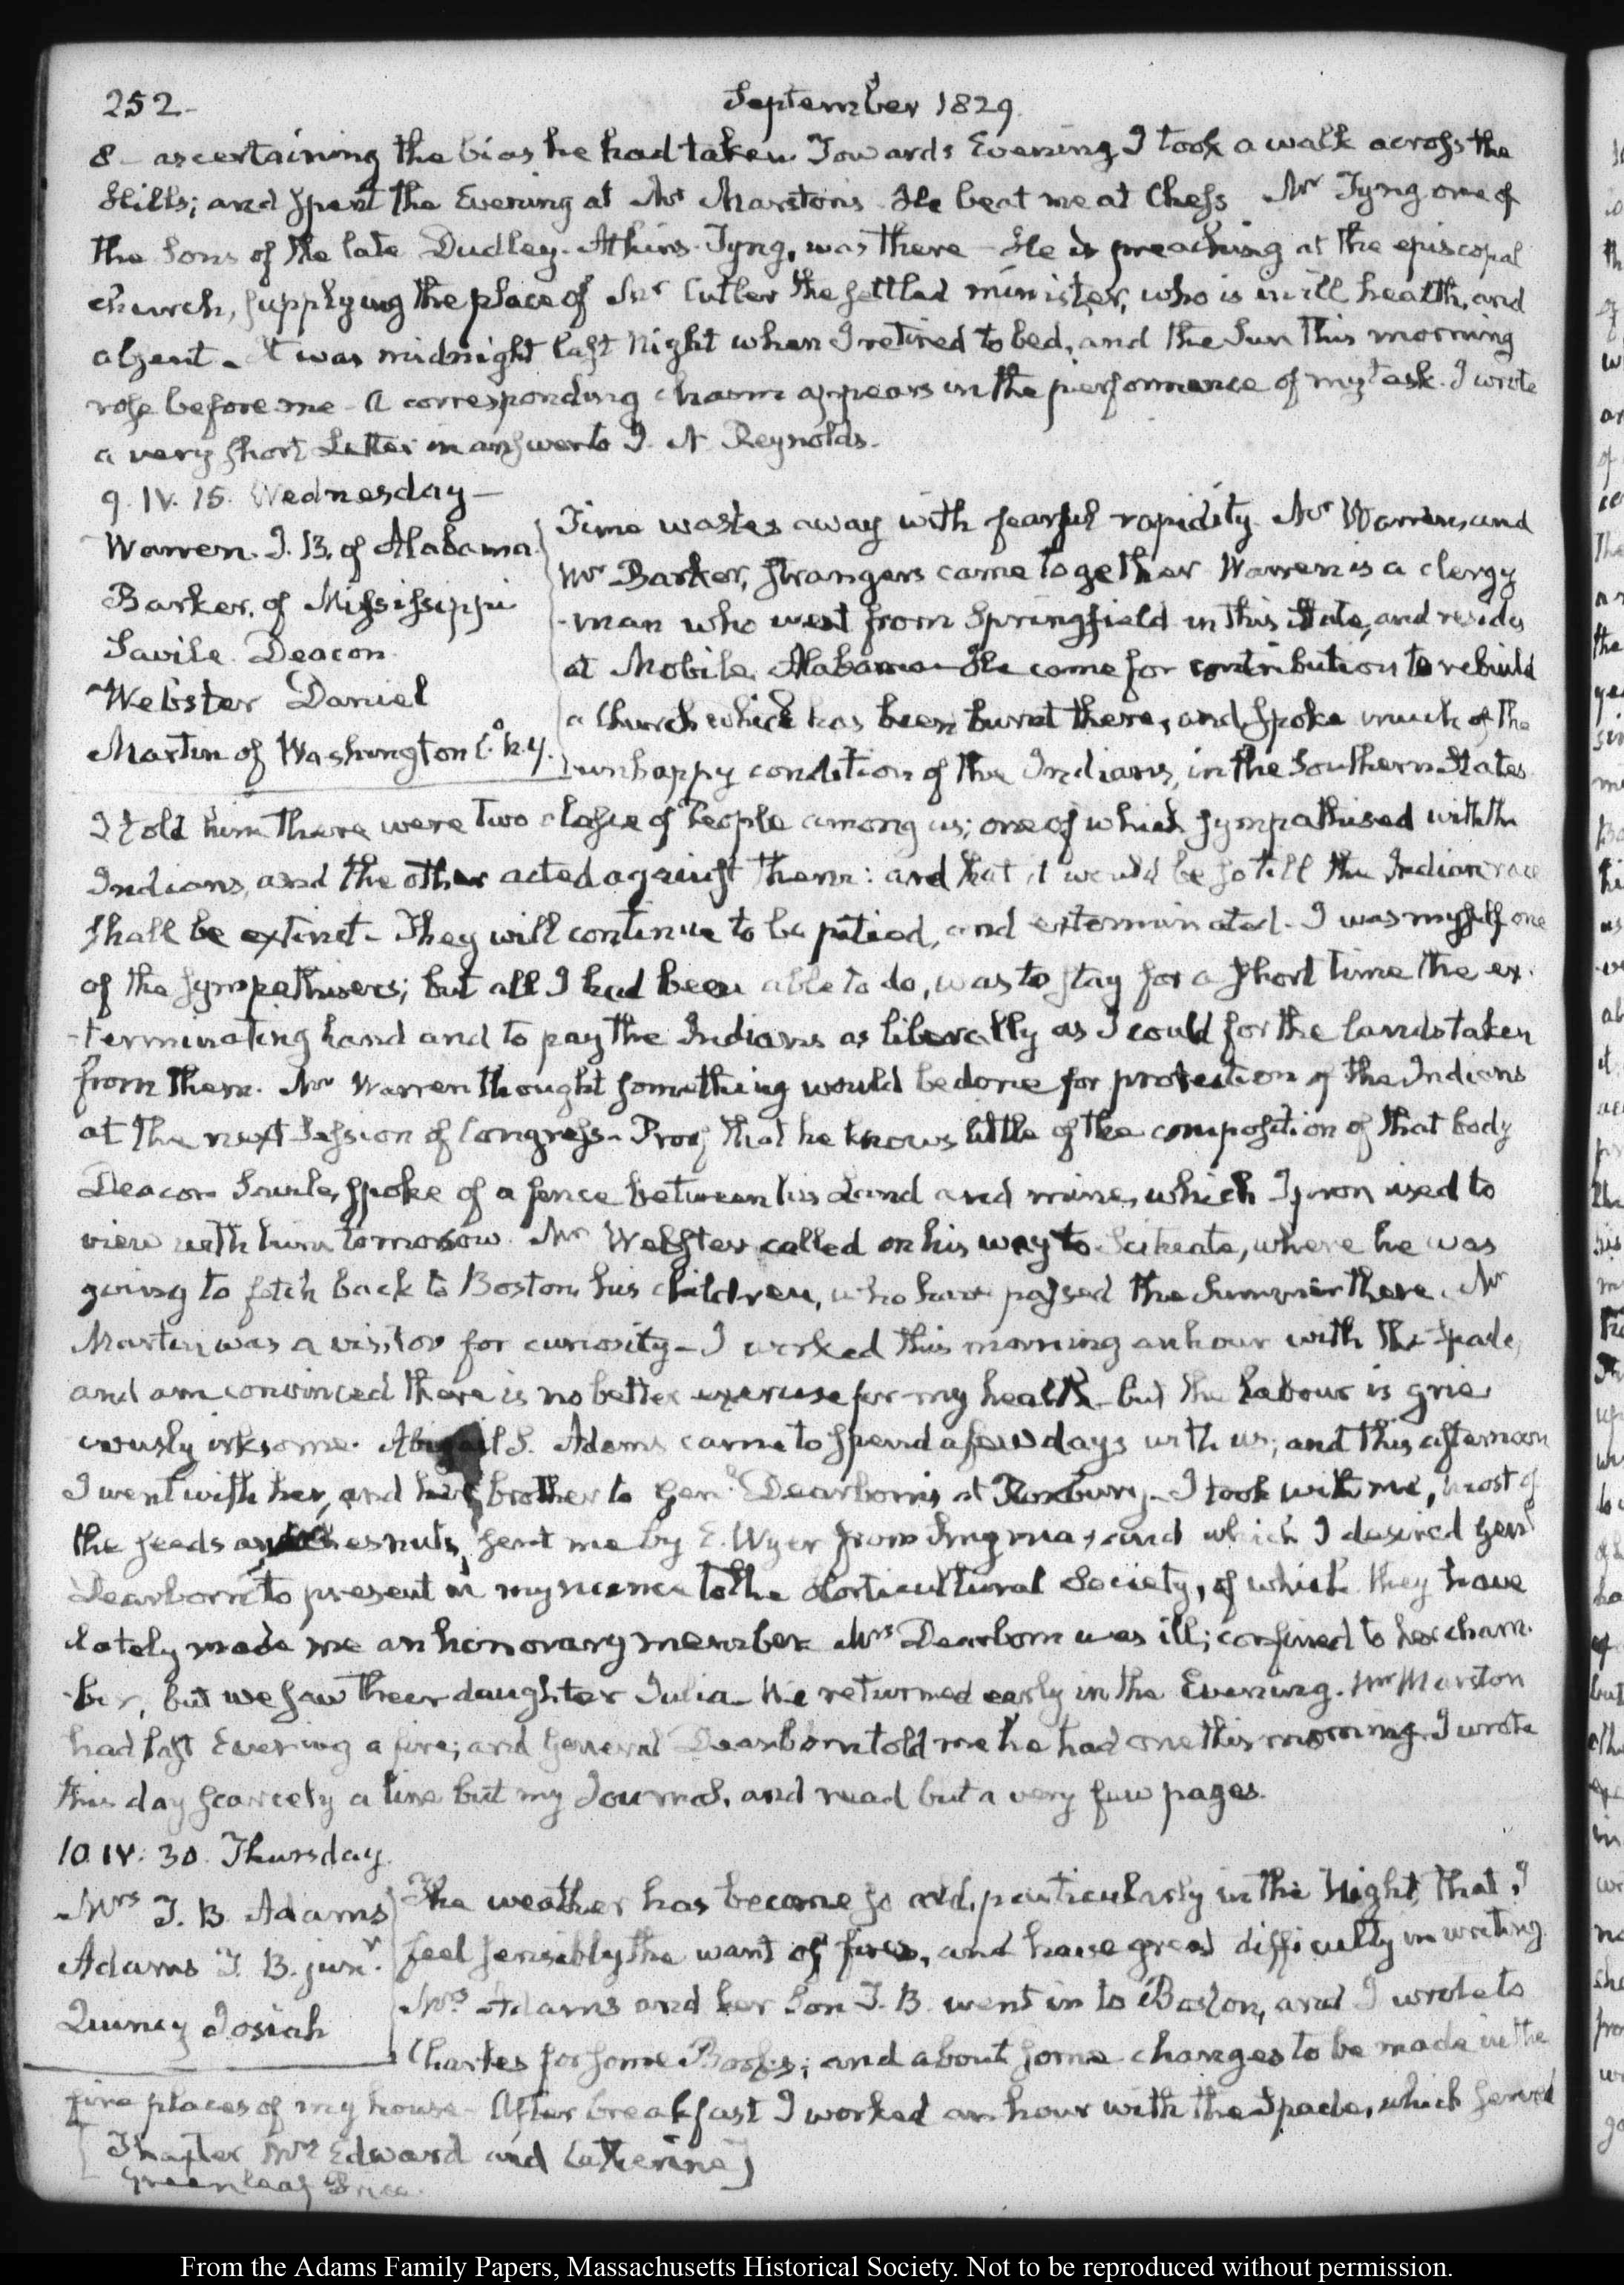 252-
September 1829.
8- ascertaining the bias he had taken. Towards Evening I took a walk across the
Hills; and spent the Evening at Mr Marston's. He beat me at Chess. Mr Tyng one of
the Sons of the late Dudley-Atkins-Tyng, was there- He is preaching at the episcopal
church, supplying the place of Mr Cutler the settled minister, who is in ill health, and
absent- It was midnight last Night when I retired to bed, and the Sun this morning
rose before me- A corresponding chasm appears in the performance of my task. I wrote
a very short Letter in answer to J. N. Reynolds.
9. IV. 15. Wednesday-
Warren. J. B. of Alabama.
Barker, of Mississippi
Savile. Deacon
Webster Daniel
Martin of Washington Co. N.Y.
Time wastes away with fearful rapidity. Mr Warren, and
Mr Barker, strangers came together Warren is a clergy
-man who went from Springfield in this State, and resides
at Mobile, Alabama- He came for contributions to rebuild
a Church which has been burnt there, and spoke much of the
unhappy condition of the Indians, in the Southern States
I told him there were two classes of People among us; one of which sympathised with the
Indians, and the other acted against them: and that it would be so till the Indian race
shall be extinct- They will continue to be pitied, and exterminated- I was myself one
of the sympathisers; but all I had been able to do, was to stay for a short time the ex-
-terminating hand and to pay the Indians as liberally as I could for the lands taken
from them. Mr Warren thought something would be done for protection of the Indians
at the next Session of Congress- Proof that he knows little of the composition of that body
Deacon Savile, spoke of a fence between his Land and mine, which I promised to
view with him tomorrow. Mr Webster called on his way to Scituate, where he was
going to fetch back to Boston, his children, who have passed the Summer there. Mr
Martin was a visitor for curiosity- I worked this morning an hour with the Spade,
and am convinced there is no better exercise for my health- but the labour is grie
vously irksome. Abigail S. Adams came to spend a few days with us; and this afternoon
I went with her, and her brother to Genl. Dearborn's at Roxbury- I took with me, most of
the seeds and chesnuts, sent me by E. Wyer from Smyrna, and which I desired Genl
Dearborn to present in my name to the Horticultural Society, of which they have
lately made me an honorary member Mrs Dearborn was ill; confined to her cham-
-ber, but we saw their daughter Julia- We returned early in the Evening. Mr Marston
had last Evening a fire; and General Dearborn told me he had one this morning. I wrote
this day scarcely a line but my Journal, and read but a very few pages.
10. IV: 30. Thursday.
Mrs T. B. Adams
Adams T. B. junr.
Quincy Josiah
The weather has become so cold, particularly in the Night, that I
feel sensibly the want of fires, and have great difficulty in writing
Mrs Adams and her Son T. B. went in to Boston, and I wrote to
Charles for some Books; and about some changes to be made in the
fire places of my house- After breakfast I worked an hour with the Spade, which served
[Thaxter Mrs Edward and Catherine]
Greenleaf Price